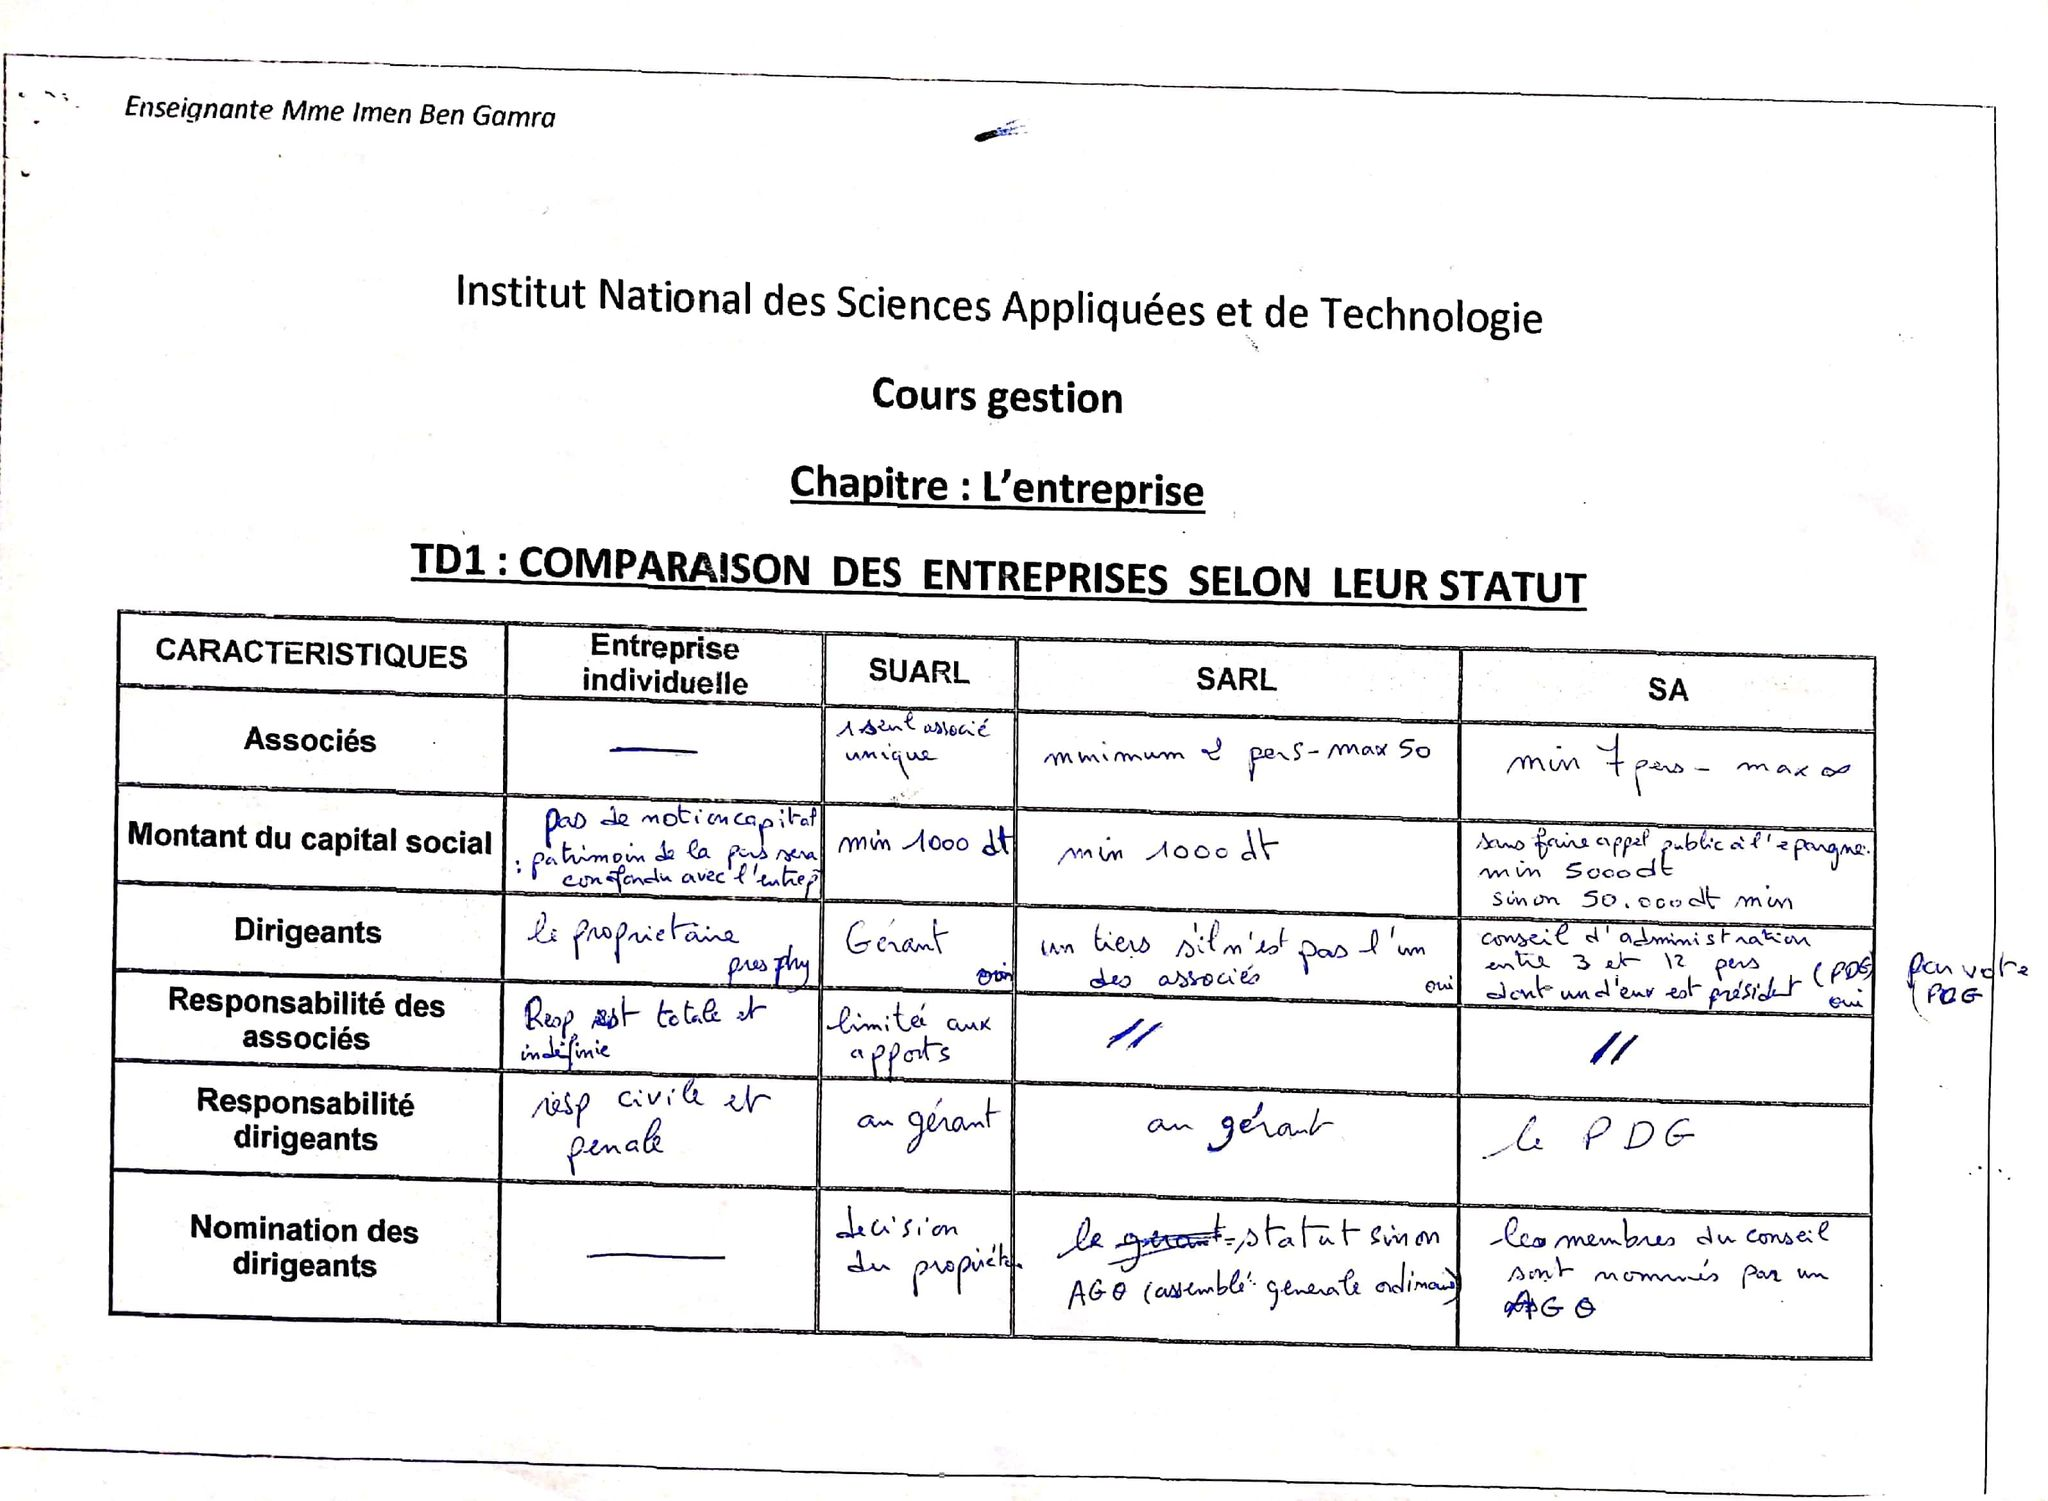 Enseignante Mme Imen Ben Gamra
Institut National des Sciences Appliquées et de Technologie
Cours gestion
Chapitre : L'entreprise
TD1 : COMPARAISON DES ENTREPRISES SELON LEUR STATUT
CARACTERISTIQUES
Entreprise
individuelle
SUARL
SARL
SA
Associés
1 seul associé
unique
minimum 2 pers - max 50
min 7 pers - max ∞
Montant du capital social
pas de notion capital
: patrimoin de la pers sera
confondu avec l'entrep
min 1000 dt
min 1000 dt
sans faire appel public à l'epargne.
min 5000 dt
sinon 50.000 dt min
Dirigeants
le proprietaire
pres phy
Gérant
oui
un tiers s'il n'est pas l'un
des associés
oui
conseil d'administration
entre 3 et 12 pers
dont un d'eux est président (PDG)
oui
par vote
(PDG
Responsabilité des
associés
Resp est totale et
indéfinie
limitée aux
apports
//
//
Responsabilité
dirigeants
resp civile et
penale
au gérant
au gérant
le PDG
Nomination des
dirigeants
decision
du propriét.
le gérant =, statut sinon
AGO (assemblé generale ordinaire)
les membres du conseil
sont nommés par un
AGO